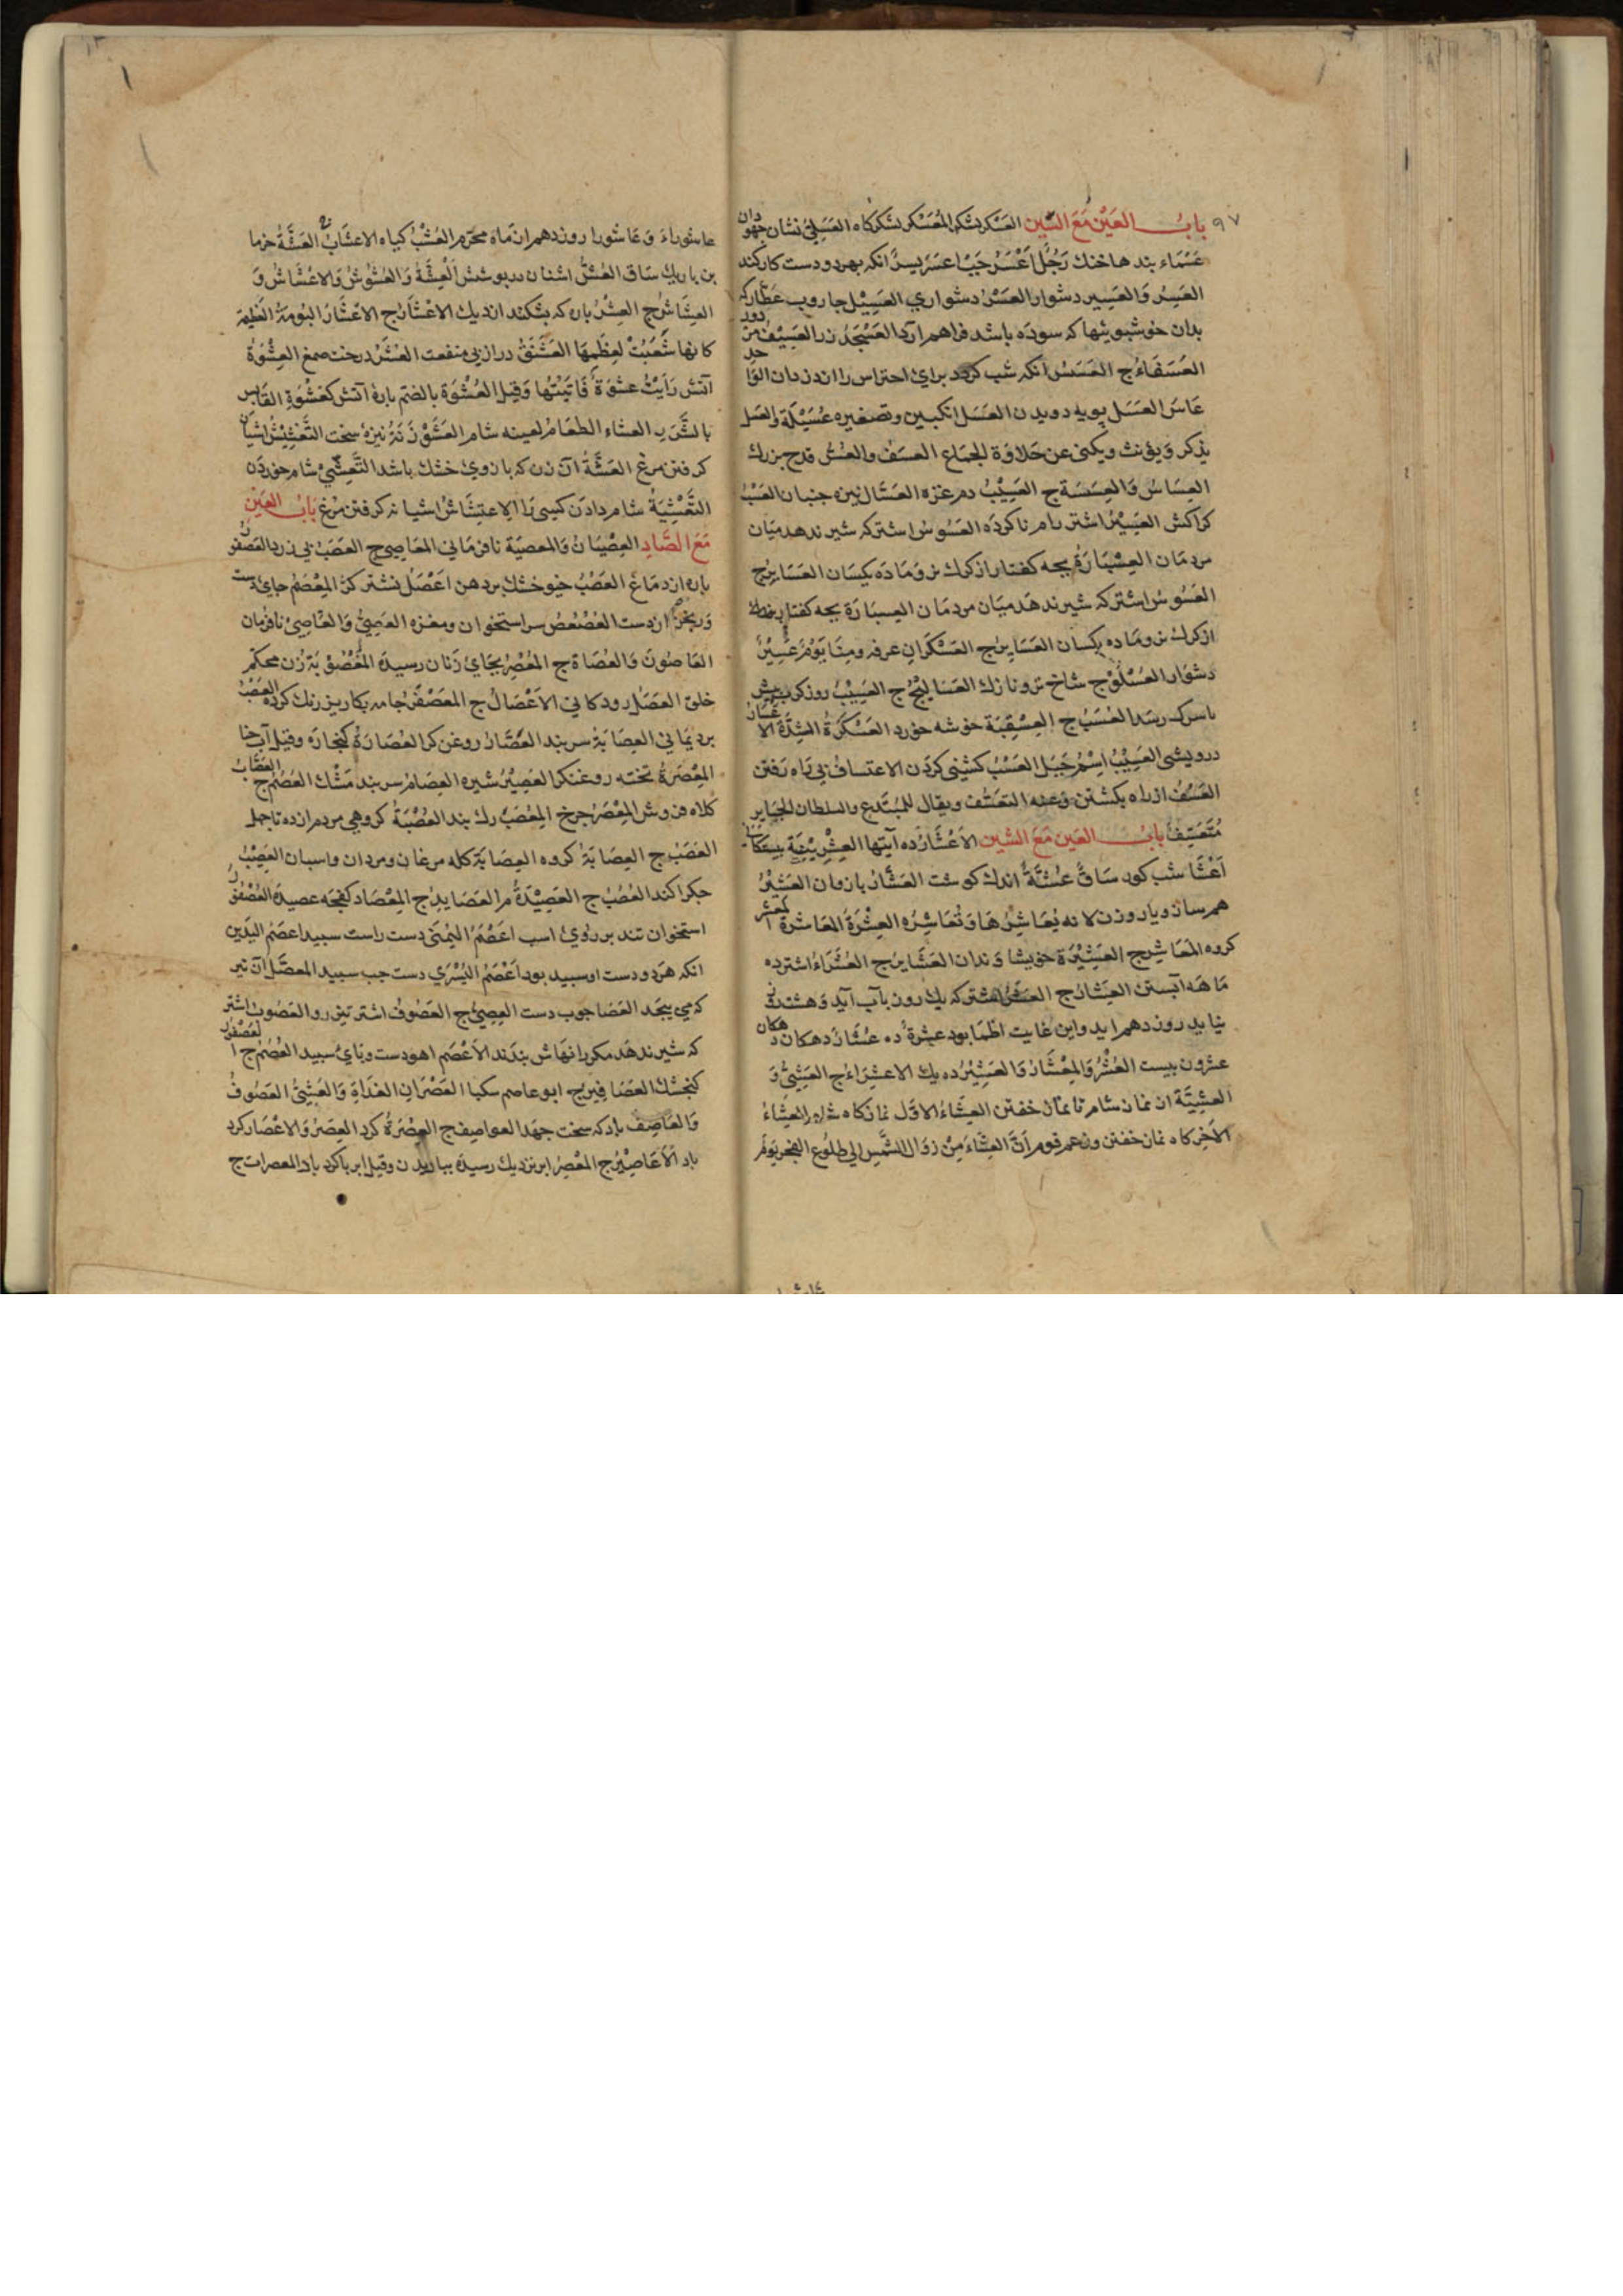 ۹۷ باب العَيْن مَعَ السِّين العَسْكر لشكر المُعَسْكر لشكركاه العَسَلِيّ نشان جهودان
عَسْمَاء بند هاخنك رَجُلٌ اَعْسَرُ جَپْ اعسَر يسرٌ انكه بهردو دست كار كند
العَسِرُ وَالعَسِير دشوار العُسْرُ دشواري العَسِيْل جاروب عَطّار كه
بدان خوشبوئيها كه سوده باشد فراهم ارد العَسْجَدُ زر العَسِيْف مزدور
العُسَفَاءُ ج العَسَسُ انكه شب كردد براي احتراس را از دزدان الواحد
عَاسَ العَسَل پويه دويدن العَسَل انكبين وتصغيره عُسَيْلَة والعسل
يذكر وَيؤنث ويكنى عن حَلاوَة الجماع العسَف والعُسُّ قدح بزرك
العِسَاسُ وَالعِسَسَة ج العَسِيْبُ دم غزه العَسَّال نيزه جنبان العَسْبُ
كراكش العَسِيْرُ اشتر رام ناكرده العَسُوسُ اشتر كه شير ندهد ميَان
مردمَان العِسْبَارَةُ بچه كفتار از كرك نر وَمَادَه يكسَان العَسَابِرُ ج
العَسُوسُ اشتر كه شير ندهَد ميَان مردمَان العِسبَارَة بچه كفتار
از كرك نر وماده يكسان العَسَابِرُ ج العَسْكَرَانِ عرفه ومِنَا يَوْمٌ عَسِيْرٌ
دشوَار العُسْلُوْج شاخ تر و نازك العَسَاليْجُ ج العَسِيْبُ
العُسُبُ ج العِسْقِبَة خوشه خورد العَسْكَرَةُ الشِدَّةُ
درويشى العَسِيْبُ اِسْمُ جَبَل العَسْبُ كشنى كردَن الاعتسافُ بي رَاه رَفتن
العَسْفُ از راه بكشتن وَعنه التعَسُّف ويقال للمُبْتَدِع والسلطان الجَاير
مُتَعَسِّفٌ باب العَين مَعَ الشين الاَعْشَارُ ده آيتها العِشْرِيْنِيَّة
اَعْشَا شب كور سَاقٌ عَشَّةٌ اندك كوشت العَشَّارُ باژوان العَشِيْرُ
همرساز ويار وزن لانه يُعَاشِرُهَا وَتُعَاشِرُه العِشْرَةُ المعَاشرة المعشر
كروه المَعَاشِرُ ج العَشِيْرَة خويشاوندان العَشَايرُ ج العُشَرَاءُ اشتر ده
مَاهَه آبستن العِشَارُ ج العِشْرُ اشتر كه يك روز بآب آيد وَهشت روز
نيايد روز دهم ايد واين غايت اظمَا بود عَشَرَةٌ ده عُشَارُ دهكان دهكان
عشرون بيست العُشْرُ وَالمِعْشَارُ وَالعَشِيْرُ ده يك الاعشِرَاءُ ج العَشِيُّ وَ
العَشِيَّة از نماز شام تا نماز خفتن العِشَاءُ الاوّل نمازكاه شام العِشَاءُ
الآخِر كاه نماز خفتن وزعم قوم اَنَّ العِشَاءَ مِنْ زوَال الشَّمسِ الى طلُوع الفجر يَومُ
عاشوراءَ وَعَاشورا روز دهم از ماه محرّم العُشْبُ كياه الاعشَابُ ج العَشَّةُ خرما
بن باريك سَاق العُشُّ اشيان در پوشش العِشَشَةُ وَالعُشُوشُ وَالاعْشَاشُ وَ
العِشَاشُ ج العِشْرُ پاره كه بشكند از ديك الاعْشَارُ ج الاعْشَارُ البُرمَةُ العَظِيْمَة
كانها شُعِبَتْ لعِظَمِهَا العَشَنَّقُ دراز بي منفعت العُشَرُ درخت صمغ العِشْوَةُ
آتش رَاَيْتُ عشْوَةً فَاتَيْتُهَا وَقيل العُشْوَة بالضم پارهٔ آتش كعَشْوَةِ القَابِس
العشاء الطعَام لعينه شام العَشَوْزَنَةُ نيزهٔ سخت التَّعْشِيْشُ اشيان
كرفتن مرغ العَشَّةُ آن زن كه بازوي خشك باشد التَّعَشِّيْ شام خوردن
التَّعْشِيَةُ شام دادن كسى را الاعتِشَاشُ اشيانه كرفتن مرغ باب العَين
مَعَ الصَّادِ العِصْيَانُ وَالمَعصِيَة نافرماني المَعَاصِي ج العَصَبُ پي زرد العصفور
پاره از دمَاغ العَصْبُ خيو خشك بر دهن اعْصَلُ نشتر كژ المِعْصَمُ جاي دست
ورنجن از دست العُصْعُصُ سر استخوان ومغزه العَصِيُّ وَالعَاصِيْ نافرمان
العَاصُونَ وَالعُصَاةُ ج المُعْصِرُ بجَاي زنان رسيده المَعْصُوْبَةُ زن محكم
خلق العَصَلُ رودكاني الاَعْصَالُ ج المعَصْفَرُ جامه بكاريز رنك كرده العَصْبُ
برد يماني العِصَابَةُ سربند العَصَّارُ روغن كر العُصَارَةُ كنجاره وقيل آب
المِعْصَرَةُ تخته روغنكر العَصِيْرُ شيره العِصَامُ سربند مَشْك العُصُمُ ج العَصَّابُ
كلاه فروش المِعْصَرُ چرخ المُعَصَّبُ رك بند العُصْبَةُ كروهي مردم از ده تا چهل
العُصَبُ ج العِصَابَةُ كروه العِصَابَة كله مرغان ومردان واسبان العَصِيْبُ
جكراكند العُصُبُ ج العَصِيْدَةُ م العَصَايدُ ج المِعْصَاد كفچه عصيده العُصْفُورُ
استخوان تند بر روي اسب اعْصَمُ اليُمْنَى دست راست سپيد اعصَم اليَدين
انكه هردو دست او سپيد بود اَعْصَمُ اليُسْرَي دست چپ سپيد المعصّل آن تير
كه مي پيچد العَصَا چوب دست العِصِيّ ج العَصُوف اشتر تيز رو العَصُوب اشتر
كه شير ندهَد مكر رانهاش بندند الاَعْصَم اهو دست وپاي سپيد العُصْمُ ج العُصْفُور
كنجشك العَصَافِيرُ ج ابو عاصم سكبا العَصْرَانِ الغَدَاةِ وَالعَشِيّ العَصُوفُ
وَالعَاصِف باد كه سخت جهد العواصِف ج العِصْرَةُ كرد العِصَرُ وَالاعْصَار كرد
باد الاَعَاصِيْرُ ج المُعْصِرُ ابر نزديك رسيده بباريدن وقيل ابر باكرد باد المعصرات ج